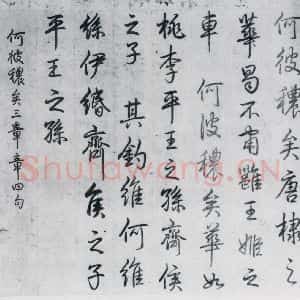 何彼穠矣唐棣之
華曷不肅雝王姬之
車 何彼穠矣華如
桃李平王之孫齊侯
之子 其釣維何維
絲伊緡齊侯之子
平王之孫
何彼穠矣三章章四句
Shufawang.CN